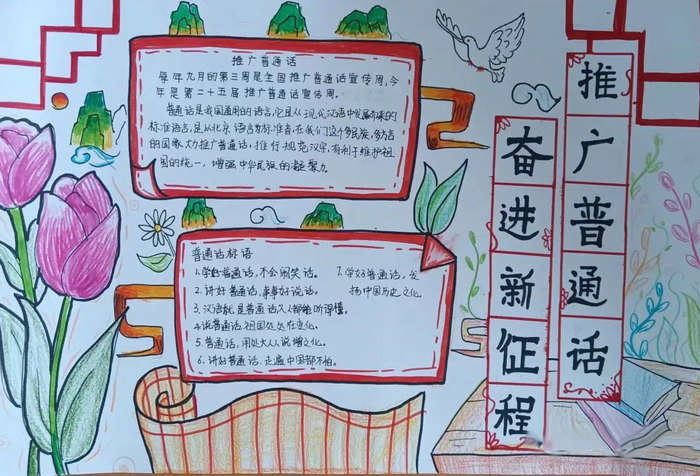 推广普通话
每年九月的第三周是全国推广普通话宣传周,今
年是第二十五届推广普通话宣传周。
普通话是我国通用的语言,它是从现代汉语中发展而来的
标准语言,是从北京语言为标准音,在我们这个多民族,多方言
的国家大力推广普通话,推行规范汉字,有利于维护祖
国的统一,增强中华民族的凝聚力。
普通话标语
1.学好普通话,不会闹笑话。
2.讲好普通话,事事好说话。
3.汉语就是普通话人人都能听得懂。
4.说普通话,祖国处处在变化。
5.普通话,用处大人人说增文化。
6.讲好普通话,走遍中国都不怕。
7.学好普通话,发
扬中国历史文化。
推广普通话
奋进新征程